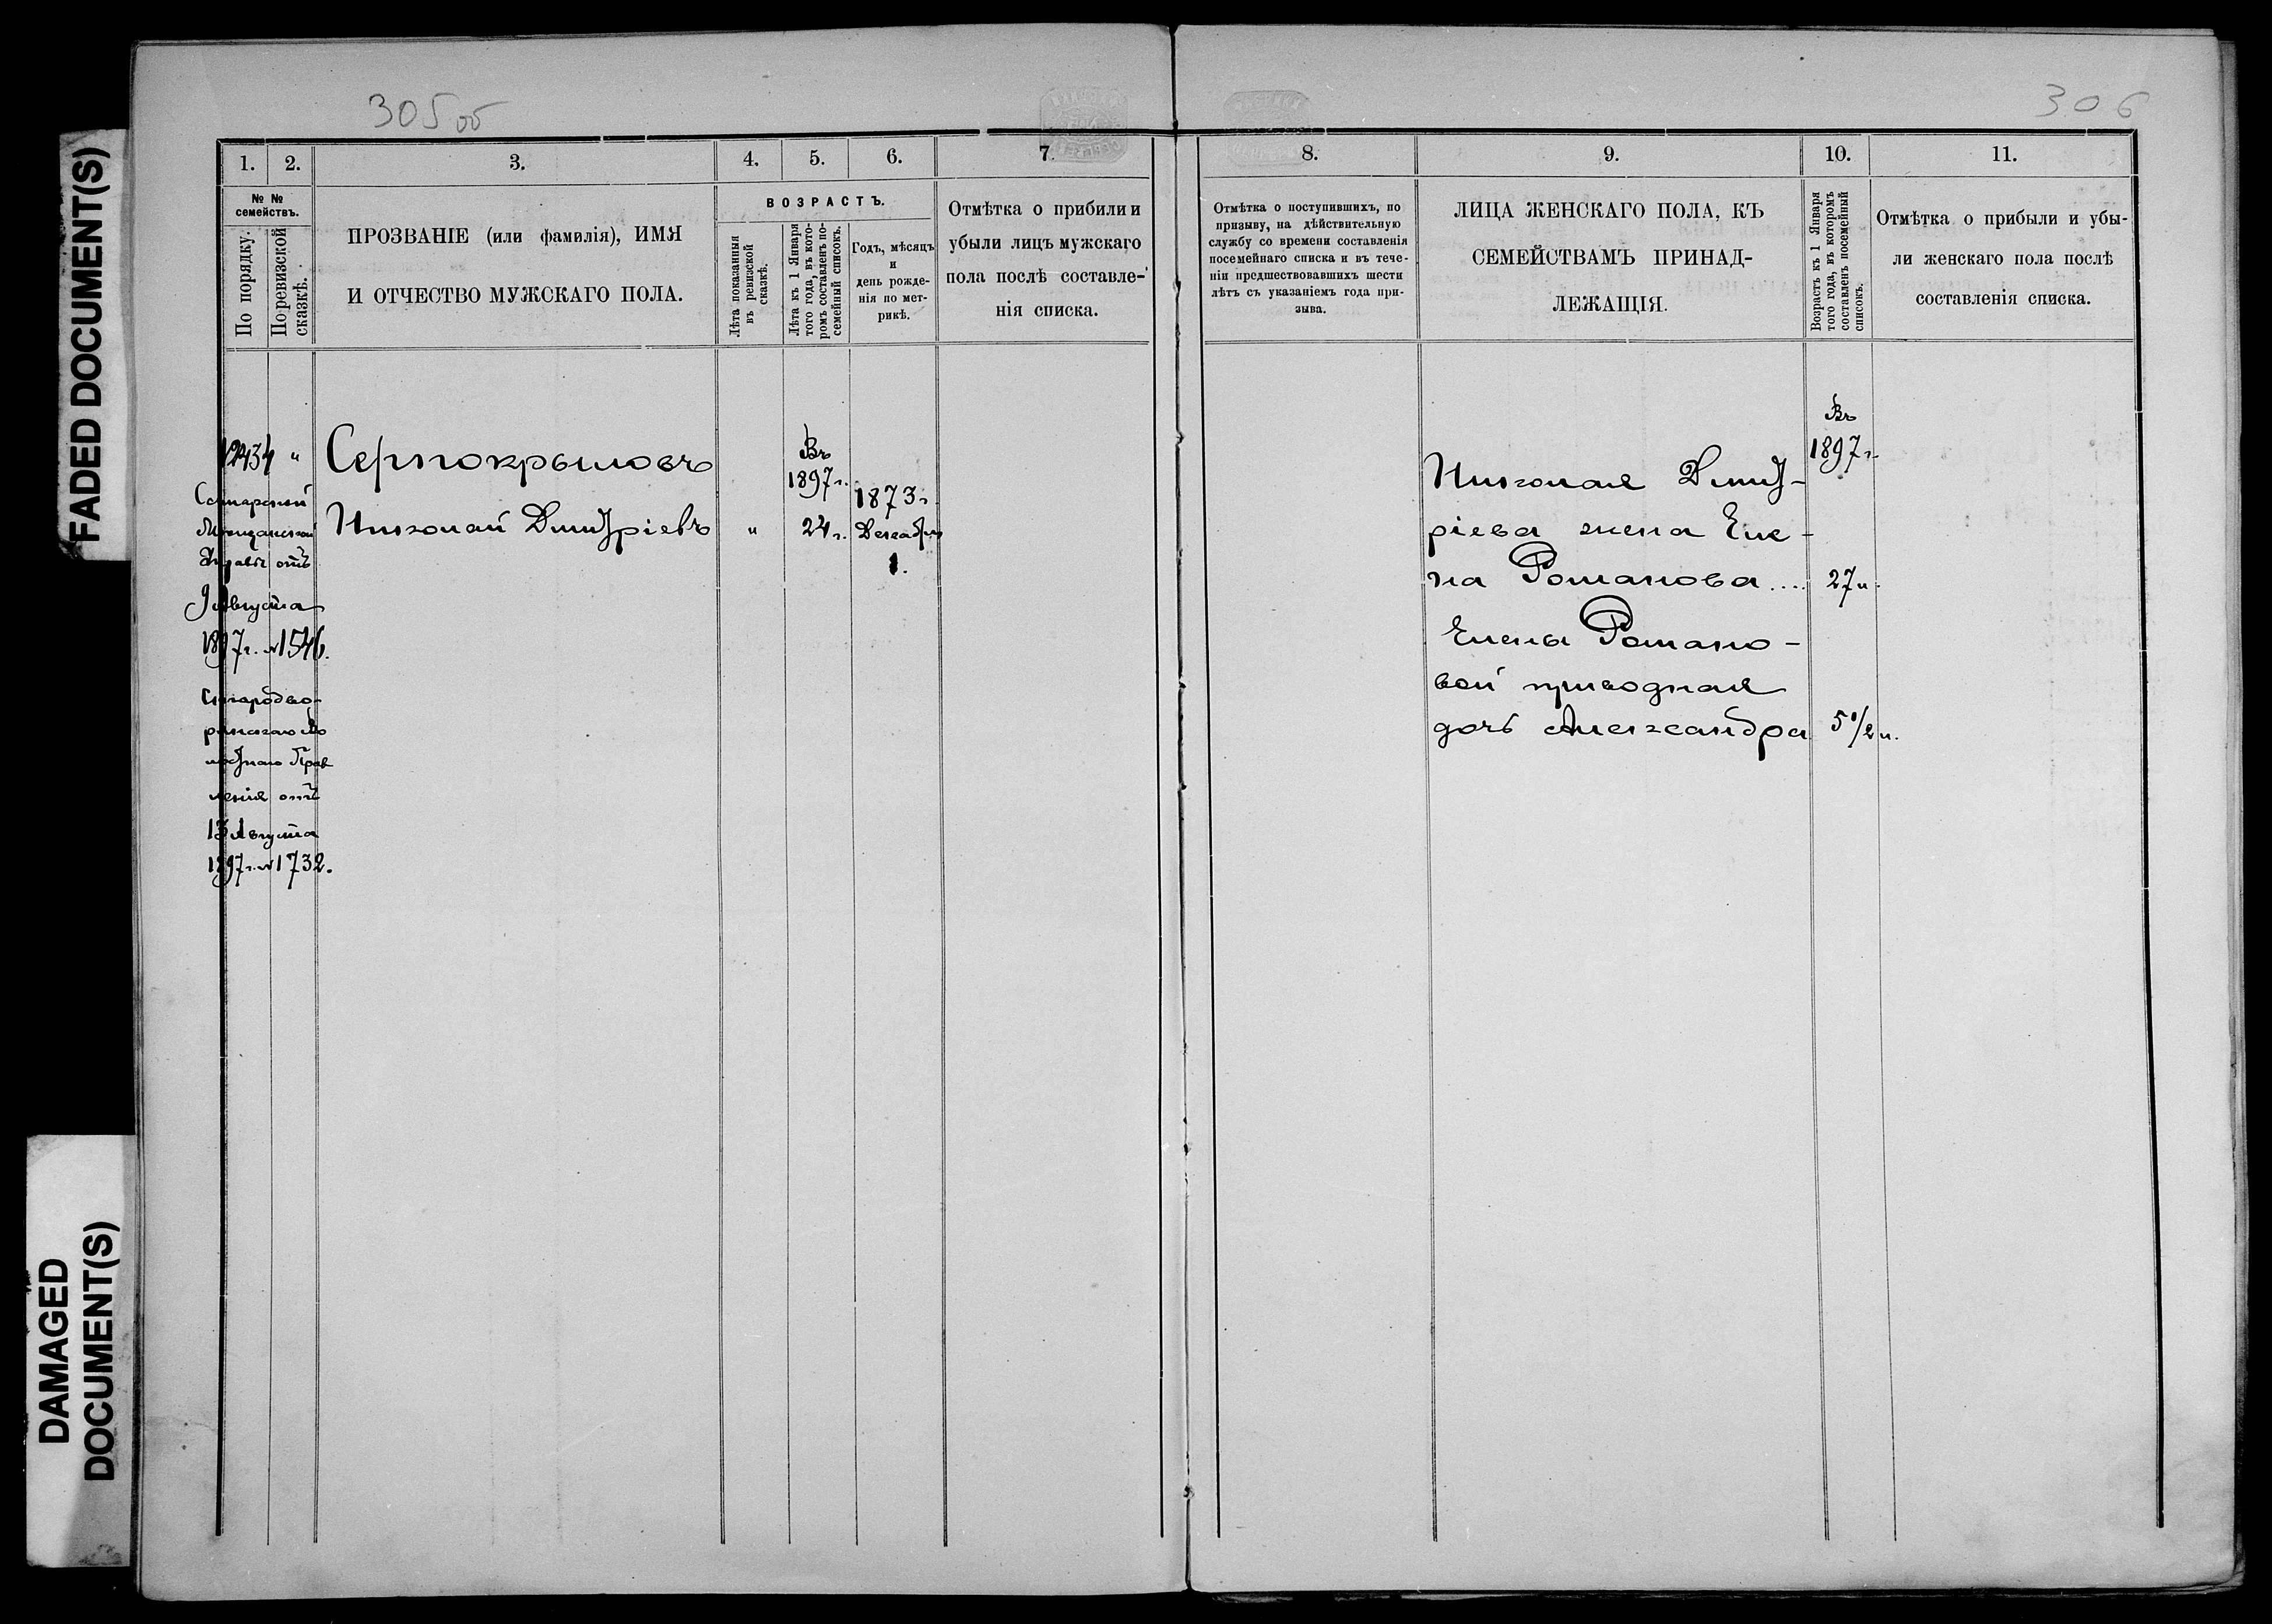 FADED DOCUMENT(S)
DAMAGED
DOCUMENT(S)
305 об
1.
2.
3.
4.
5.
6.
7.
№ №
семействъ.
По порядку.
По ревизской
сказкѣ.
ПРОЗВАНІЕ (или фамилія), ИМЯ
И ОТЧЕСТВО МУЖСКАГО ПОЛА.
ВОЗРАСТЪ.
Лѣта показанныя
въ ревизской
сказкѣ.
Лѣта къ 1 Января
того года, въ кото-
ромъ составленъ по-
семейный списокъ.
Годъ, мѣсяцъ
и
день рожде-
нія по мет-
рикѣ.
Отмѣтка о прибили и
убыли лицъ мужскаго
пола послѣ составле-
нія списка.
"
Серпокрыловъ
Николай Дмитріевъ
"
Въ
1897 г.
24 г.
1873 г.
Декабря
1.
Самарской
Мѣщанской
Управы отъ
9 Августа
1897 г. № 1546.
лостнаго Прав
ленія отъ
13 Августа
1897 г. № 1732.
306
8.
9.
10.
11.
Отмѣтка о поступившихъ, по
призыву, на дѣйствительную
службу со времени составленія
посемейнаго списка и въ тече-
ніи предшествовавшихъ шести
лѣтъ съ указаніемъ года при-
зыва.
ЛИЦА ЖЕНСКАГО ПОЛА, КЪ
СЕМЕЙСТВАМЪ ПРИНАД-
ЛЕЖАЩІЯ.
Возрастъ къ 1 Января
того года, въ которомъ
составленъ посемейный
списокъ.
Отмѣтка о прибыли и убы-
ли женскаго пола послѣ
составленія списка.
Въ
1897 г.
Николая Дмит-
ріева жена Еле-
на Романова .... 27 л.
Елены Романо-
вой приводная
дочь Александра 5 1/2 л.